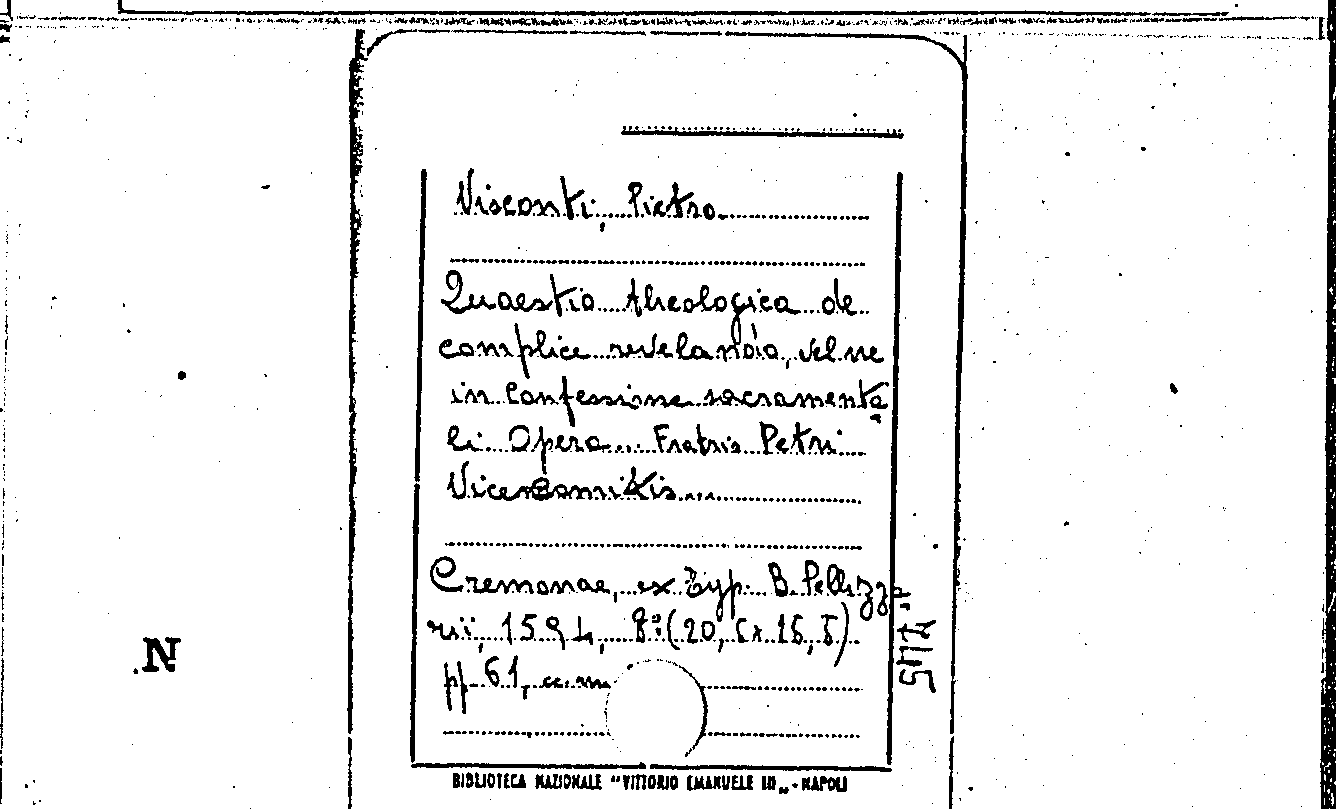 Visconti, Pietro
Quaestio theologica de
complice revelando, vel ne
in confessione sacramenta
li. Opera... Fratris Petri
Vicecomitis...
Cremonae, ex Typ. B. Pellizza
rii, 1594, 8°(20,5x15,5)
pp 61, cc.m
N
BIBLIOTECA NAZIONALE "VITTORIO EMANUELE III" - NAPOLI